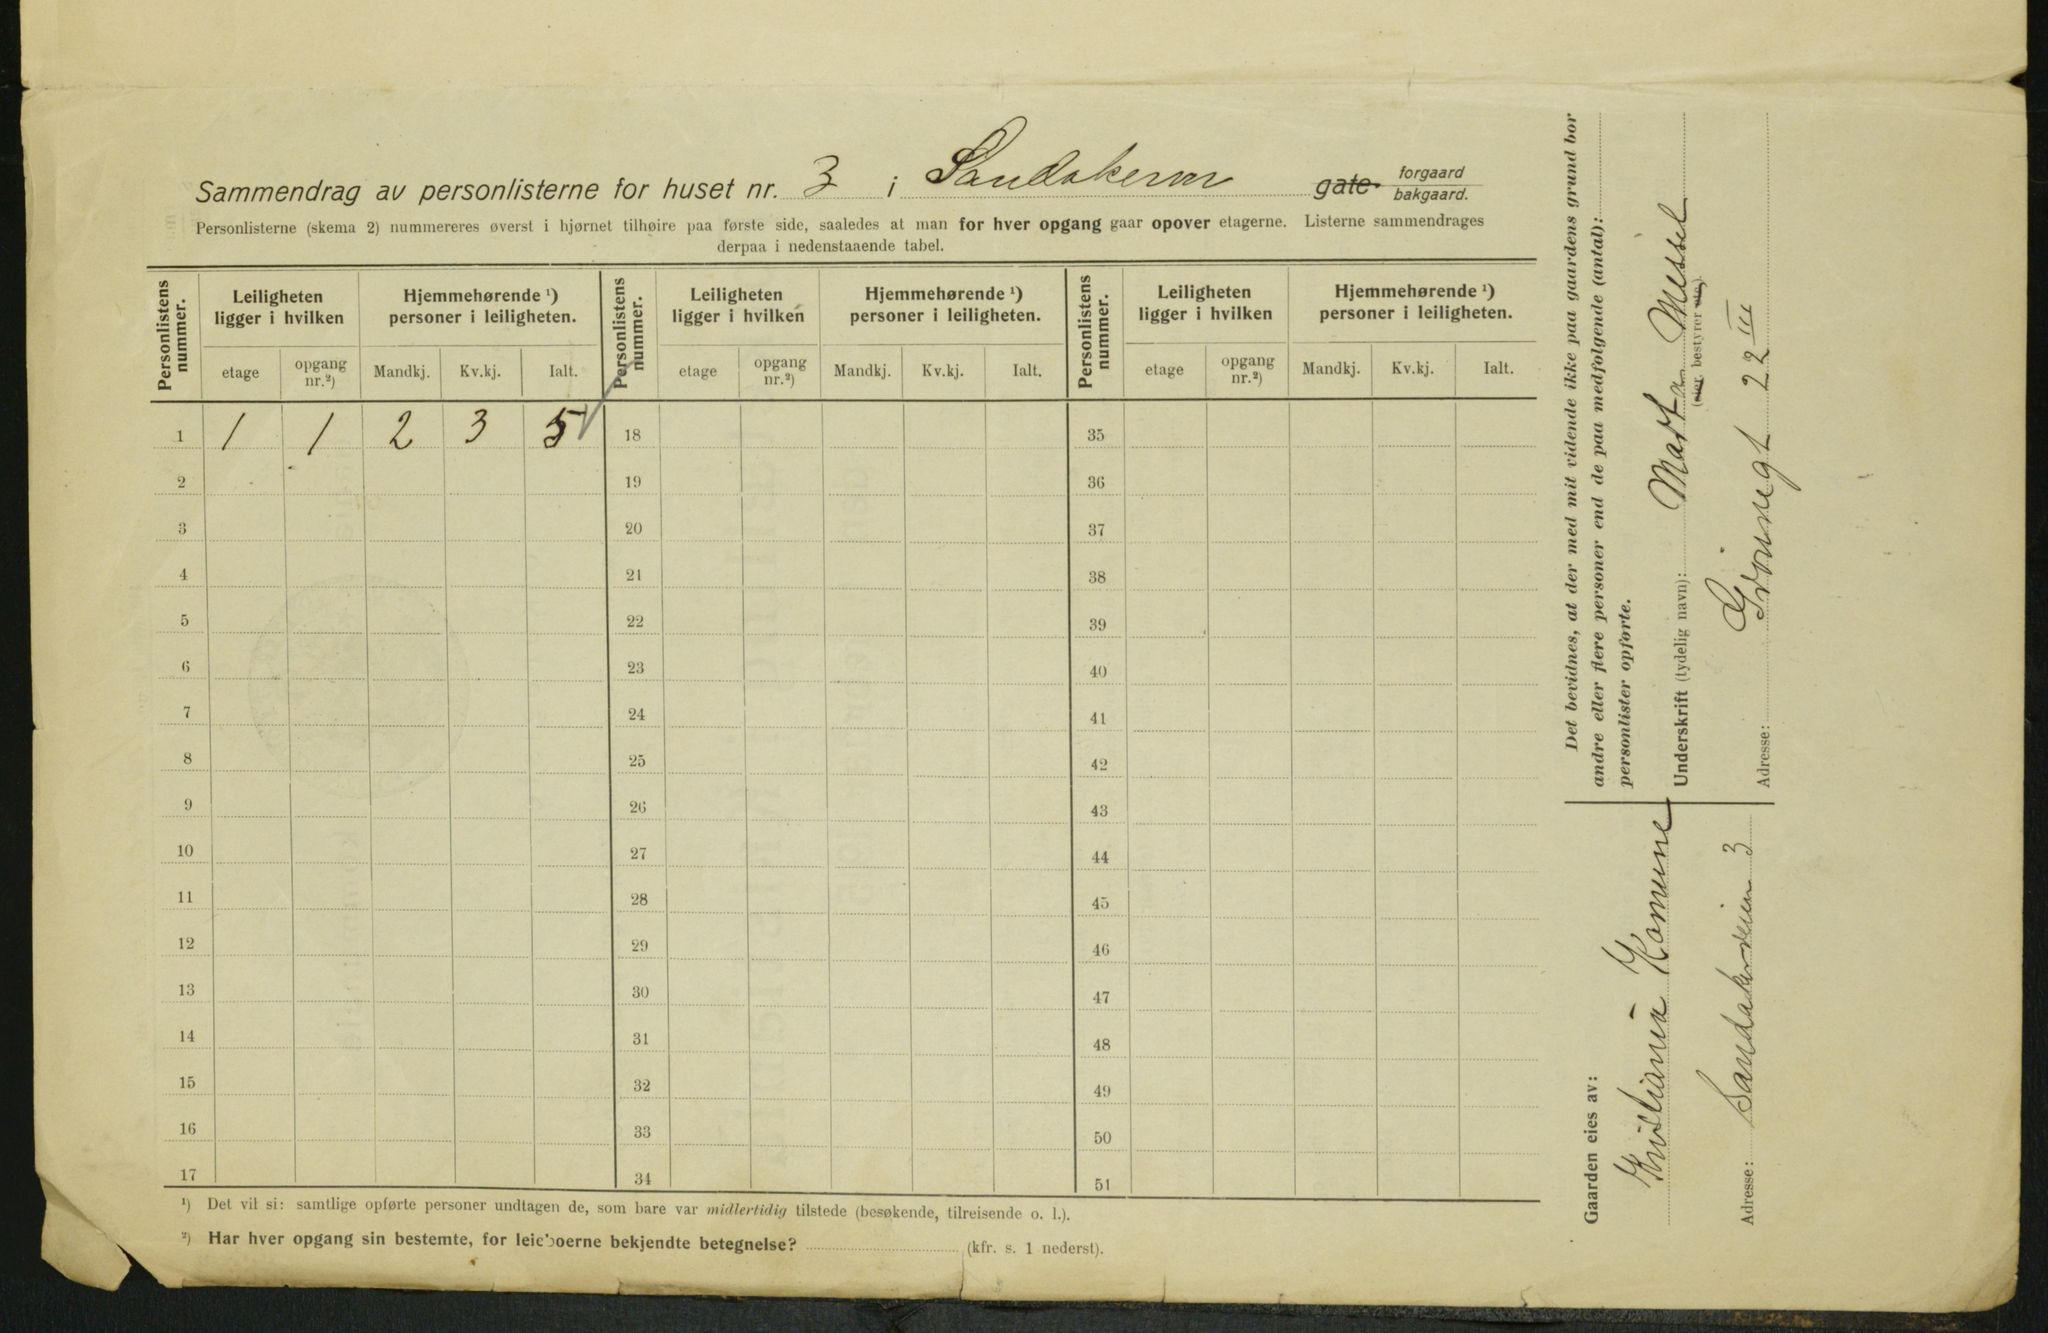 Sammendrag av personlisterne for huset nr. 3 i Sandakerver gate forgaard bakgaard.
Personlisterne (skema 2) nummereres øverst i hjørnet tilhøire paa første side, saaledes at man for hver opgang gaar opover etagerne. Listerne sammendrages
derpaa i nedenstaaende tabel.
Personlistens nummer. Leiligheten ligger i hvilken Hjemmehørende ¹) personer i leiligheten. Personlistens nummer. Leiligheten ligger i hvilken Hjemmehørende ¹) personer i leiligheten. Personlistens nummer. Leiligheten ligger i hvilken Hjemmehørende ¹) personer i leiligheten.
etage opgang nr.²) Mandkj. Kv.kj. Ialt. etage opgang nr.²) Mandkj. Kv.kj. Ialt. etage opgang nr.²) Mandkj. Kv.kj. Ialt.
1 1 1 2 3 5 18 35
2 19 36
3 20 37
4 21 38
5 22 39
6 23 40
7 24 41
8 25 42
9 26 43
10 27 44
11 28 45
12 29 46
13 30 47
14 31 48
15 32 49
16 33 50
17 34 51
¹) Det vil si: samtlige opførte personer undtagen de, som bare var midlertidig tilstede (besøkende, tilreisende o. l.).
²) Har hver opgang sin bestemte, for leieboerne bekjendte betegnelse? (kfr. s. 1 nederst).
Det bevidnes, at der med mit vidende ikke paa gaardens grund bor
andre eller flere personer end de paa medfølgende (antal):
personlister opførte.
Underskrift (tydelig navn): Marta Messel
(eier, bestyrer etc.).
Adresse: Grönugt 22 III
Gaarden eies av:
Kristiania Komune
Adresse: Sandakerveien 3